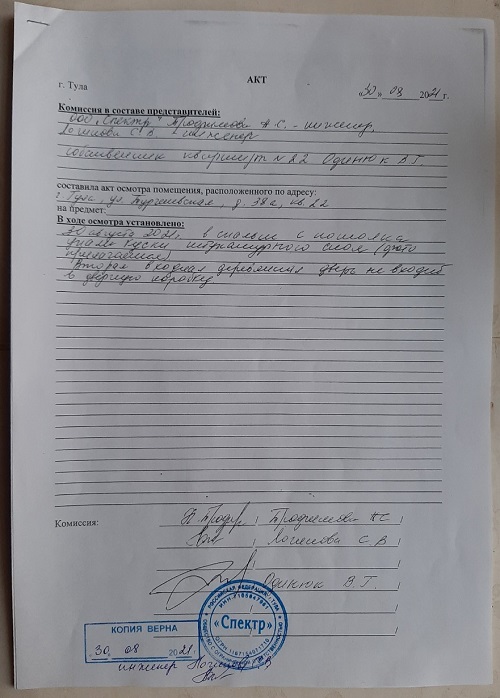 АКТ
г. Тула «30» 08 2021 г.
Комиссия в составе представителей:
ООО "Спектр" Трофимова А.С. - инженер,
Логинова С.В. инженер
собственник квартиры № 22 Одинюк В.Г.
составила акт осмотра помещения, расположенного по адресу:
г. Тула, ул. Бургеевская, д. 38а, кв. 22
на предмет:
В ходе осмотра установлено:
30 августа 2021г. в спальне с потолка
упали куски штукатурного слоя (фото
прилагается)
Вторая входная деревянная дверь не входит
в дверную коробку
Комиссия: Трофимова АС
Логинова С.В
Одинюк В.Г.
РОССИЙСКАЯ ФЕДЕРАЦИЯ
«Спектр»
КОПИЯ ВЕРНА
30, 08 2021.
инженер Логинова С.В